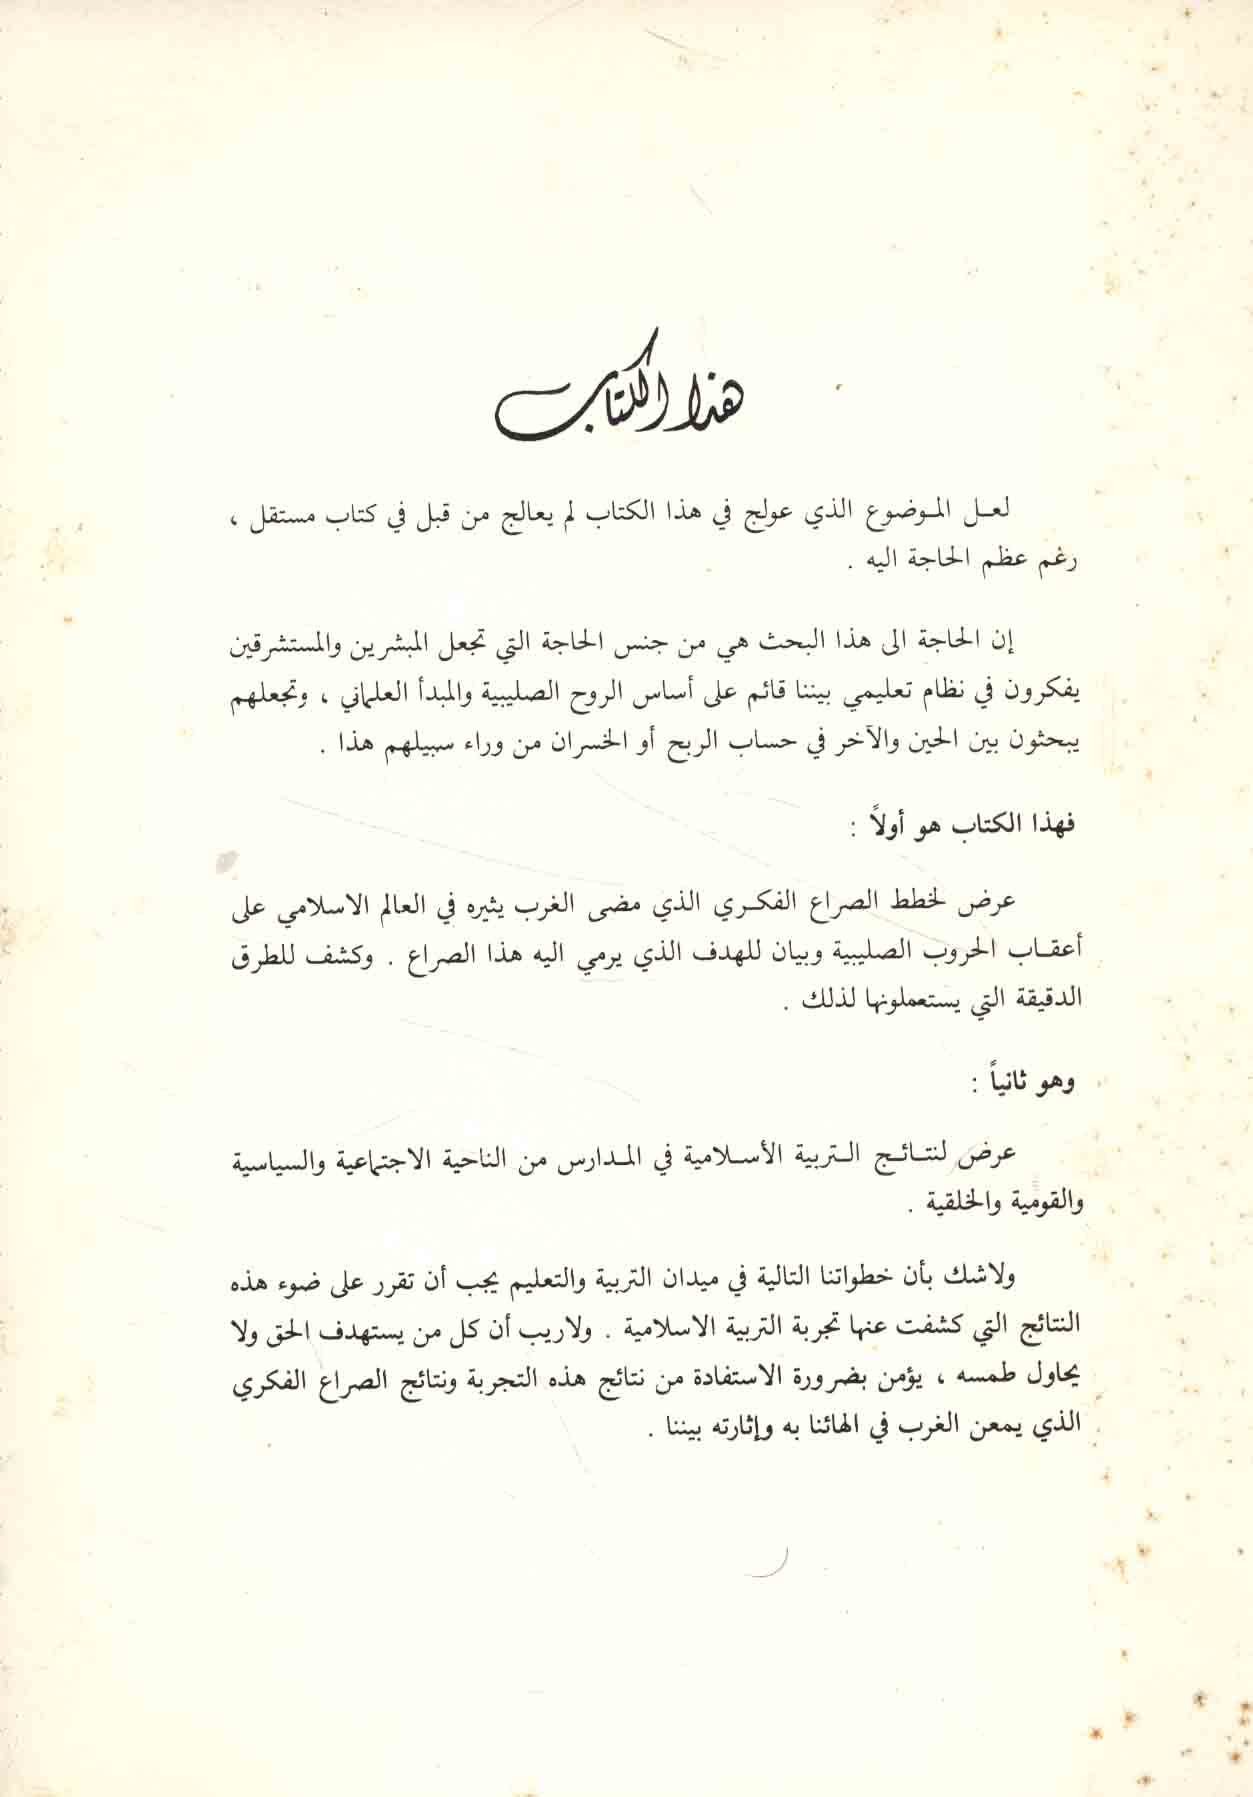 هذا الكتاب
لعـل المـوضوع الذي عولج في هذا الكتاب لم يعالج من قبل في كتاب مستقل ،
رغم عظم الحاجة اليه .
إن الحاجة الى هذا البحث هي من جنس الحاجة التي تجعل المبشرين والمستشرقين
يفكرون في نظام تعليمي بيننا قائم على أساس الروح الصليبية والمبدأ العلماني ، وتجعلهم
يبحثون بين الحين والآخر في حساب الربح أو الخسران من وراء سبيلهم هذا .
فهذا الكتاب هو أولاً :
عرض لخطط الصراع الفكـري الذي مضى الغرب يثيره في العالم الاسلامي على
أعقـاب الحروب الصليبية وبيان للهدف الذي يرمي اليه هذا الصراع . وكشف للطرق
الدقيقة التي يستعملونها لذلك .
وهو ثانياً :
عرض لنتـائـج الـتربية الأسـلامية في المـدارس من الناحية الاجتماعية والسياسية
والقومية والخلقية .
ولاشك بأن خطواتنا التالية في ميدان التربية والتعليم يجب أن تقرر على ضوء هذه
النتائج التي كشفت عنها تجربة التربية الاسلامية . ولاريب أن كل من يستهدف الحق ولا
يحاول طمسه ، يؤمن بضرورة الاستفادة من نتائج هذه التجربة ونتائج الصراع الفكري
الذي يمعن الغرب في الهائنا به وإثارته بيننا .